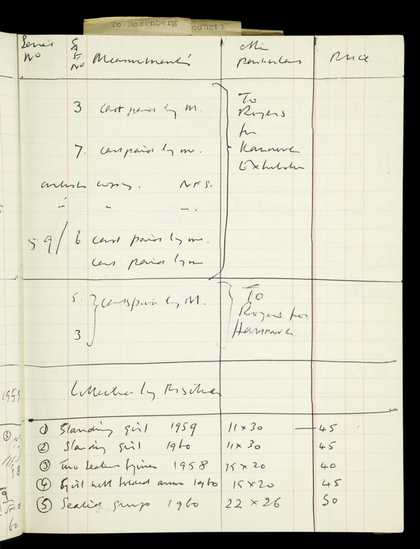 To Rosenberg
Series No Cat No Measurements Other particulars Price
3 Cast paid by M.
To Rogers for Hanover Exhibition
7. Cast paid by M.
copy. N.F.S.
" " ".
59/6 Cast paid by M.
Cast paid by M
5 Casts paid by M.
3
To Rogers for Hanover
1959
Collected by Fischer
① Standing girl 1959 11 x 30 — 45
② Standing girl 1960 11 x 30 45
③ Two seated figures 1958 15 x 20 40
④ Girl with folded arms 1960 15 x 20 45
⑤ Seated group 1960 22 x 26 50